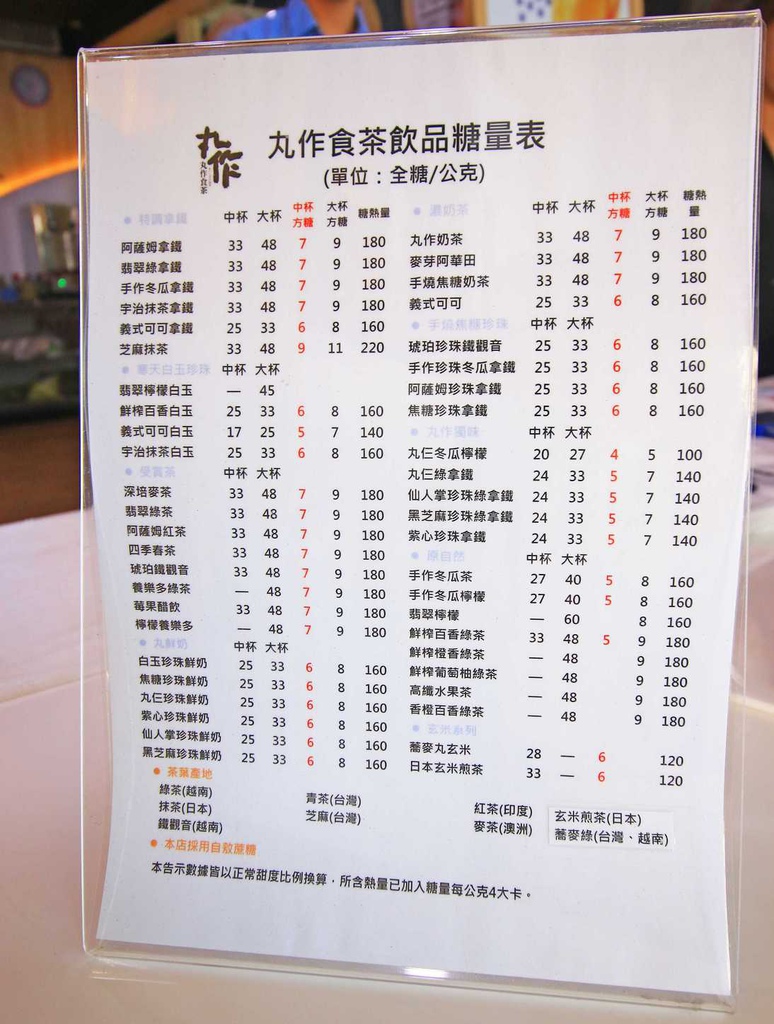 丸作
丸作食茶
丸作食茶飲品糖量表
(單位：全糖/公克)
特調拿鐵 中杯 大杯 中杯方糖 大杯方糖 糖熱量
阿薩姆拿鐵 33 48 7 9 180
翡翠綠拿鐵 33 48 7 9 180
手作冬瓜拿鐵 33 48 7 9 180
宇治抹茶拿鐵 33 48 7 9 180
義式可可拿鐵 25 33 6 8 160
芝麻抹茶 33 48 9 11 220
寒天白玉珍珠 中杯 大杯
翡翠檸檬白玉 — 45
鮮榨百香白玉 25 33 6 8 160
義式可可白玉 17 25 5 7 140
宇治抹茶白玉 25 33 6 8 160
受賞茶 中杯 大杯
深培麥茶 33 48 7 9 180
翡翠綠茶 33 48 7 9 180
阿薩姆紅茶 33 48 7 9 180
四季春茶 33 48 7 9 180
琥珀鐵觀音 33 48 7 9 180
養樂多綠茶 — 48 7 9 180
莓果醋飲 33 48 7 9 180
檸檬養樂多 — 48 7 9 180
丸鮮奶 中杯 大杯
白玉珍珠鮮奶 25 33 6 8 160
焦糖珍珠鮮奶 25 33 6 8 160
丸仨珍珠鮮奶 25 33 6 8 160
紫心珍珠鮮奶 25 33 6 8 160
仙人掌珍珠鮮奶 25 33 6 8 160
黑芝麻珍珠鮮奶 25 33 6 8 160
濃奶茶 中杯 大杯 中杯方糖 大杯方糖 糖熱量
丸作奶茶 33 48 7 9 180
麥芽阿華田 33 48 7 9 180
手燒焦糖奶茶 33 48 7 9 180
義式可可 25 33 6 8 160
手燒焦糖珍珠 中杯 大杯
琥珀珍珠鐵觀音 25 33 6 8 160
手作珍珠冬瓜拿鐵 25 33 6 8 160
阿薩姆珍珠拿鐵 25 33 6 8 160
焦糖珍珠拿鐵 25 33 6 8 160
丸作獨味 中杯 大杯
丸仨冬瓜檸檬 20 27 4 5 100
丸仨綠拿鐵 24 33 5 7 140
仙人掌珍珠綠拿鐵 24 33 5 7 140
黑芝麻珍珠綠拿鐵 24 33 5 7 140
紫心珍珠拿鐵 24 33 5 7 140
原自然 中杯 大杯
手作冬瓜茶 27 40 5 8 160
手作冬瓜檸檬 27 40 5 8 160
翡翠檸檬 — 60 8 160
鮮榨百香綠茶 33 48 5 9 180
鮮榨橙香綠茶 — 48 9 180
鮮榨葡萄柚綠茶 — 48 9 180
高纖水果茶 — 48 9 180
香橙百香綠茶 — 48 9 180
玄米系列
蕎麥丸玄米 28 — 6 120
日本玄米煎茶 33 — 6 120
茶葉產地
綠茶(越南) 青茶(台灣) 紅茶(印度) 玄米煎茶(日本)
抹茶(日本) 芝麻(台灣) 麥茶(澳洲) 蕎麥綠(台灣、越南)
鐵觀音(越南)
本店採用自敖蔗糖
本告示數據皆以正常甜度比例換算，所含熱量已加入糖量每公克4大卡。